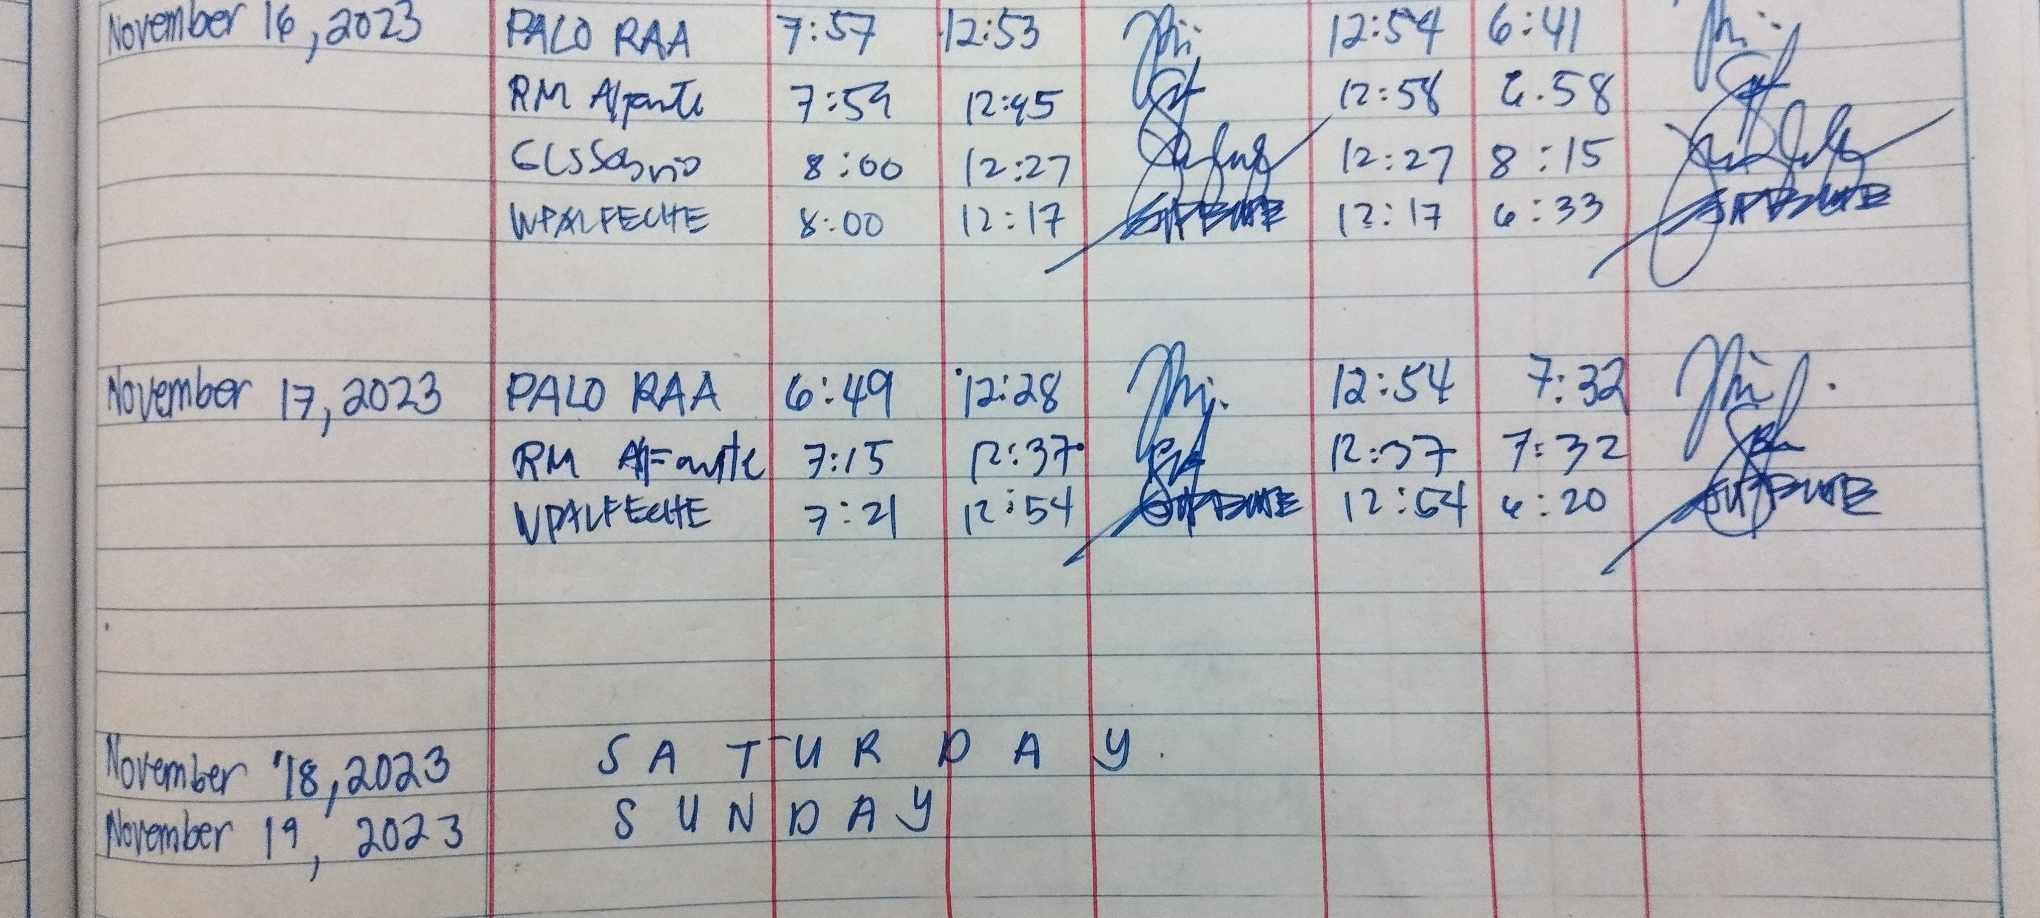 November 16, 2023 PALO RAA 7:57 12:53 12:54 6:41
RM Alfante 7:59 12:45 12:58 6.58
8:00 12:27 12:27 8:15
WPALFECHE 8:00 12:17 12:17 6:33
November 17, 2023 PALO RAA 6:49 12:28 12:54 7:32
RM Alfante 7:15 12:37 12:37 7:32
WPALFECHE 7:21 12:54 12:54 6:20
November 18, 2023 SATURDAY.
November 19, 2023 SUNDAY